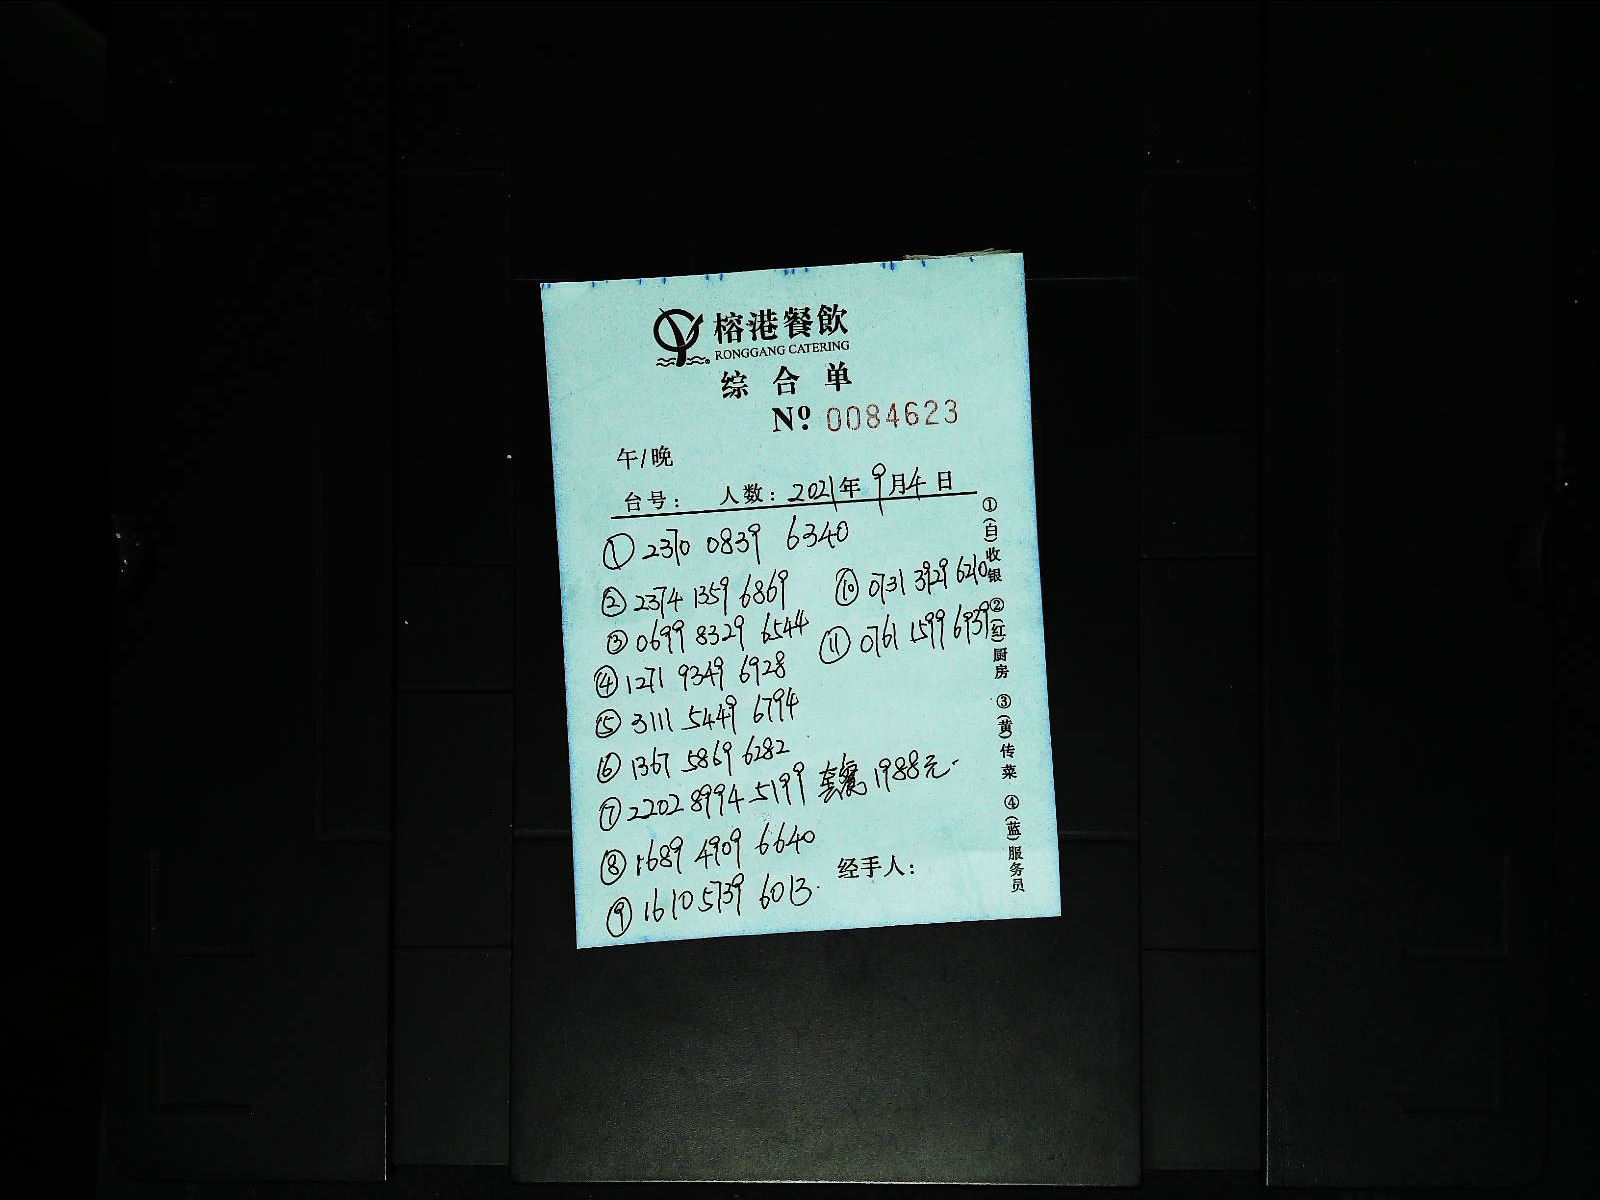 榕港餐飲
RONGGANG CATERING
综合单
Nº 0084623
午/晚
台号： 人数：2021年9月4日
①2370 0839 6340
②2374 1359 6869
⑩0731 3929 6210
③0699 8329 6544
⑪0761 1599 6939
④1271 9349 6928
⑤3111 5449 6794
⑥1367 5869 6282
⑦2202 8994 5199 套餐1988元.
⑧1689 4909 6640
⑨1610 5739 6013.
经手人：
①(白)收银 ②(红)厨房 ③(黄)传菜 ④(蓝)服务员